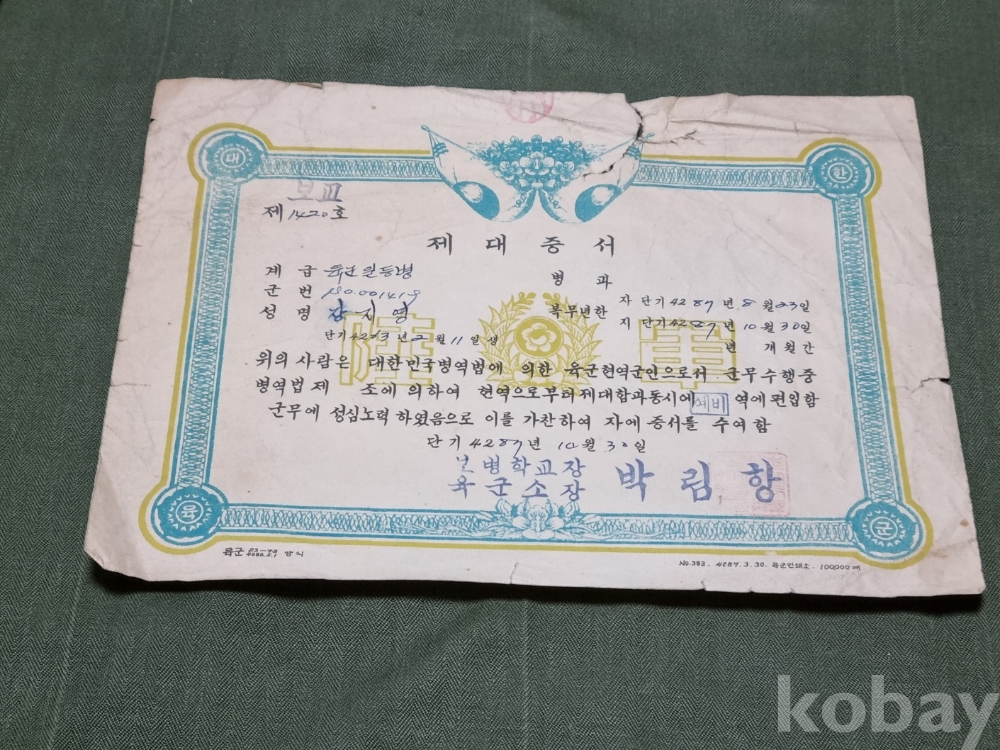 대 한
보교
제 1420 호
제 대 증 서
계 급 육군 일등병 병 과
군 번 NO.001419 자 단기 4287 년 8 월 23 일
성 명 지영 복무년한 지 단기 4287 년 10 월 30 일
단기 4213 년 2 월 11 일 생 년 개월간
陸 軍
위의 사람은 대한민국병역법에 의한 육군현역군인으로서 군무수행중
병역법 제 조에 의하여 현역으로부터 제대함과동시에 예비 역에 편입함
군무에 성심노력 하였음으로 이를 가찬하여 자에 증서를 수여함
단기 4287 년 10 월 30 일
병학교장
육군소장 박 림 항
육 군
육군 양식
No.383. 4287.3.30. 육군인쇄소. 100000매
kobay